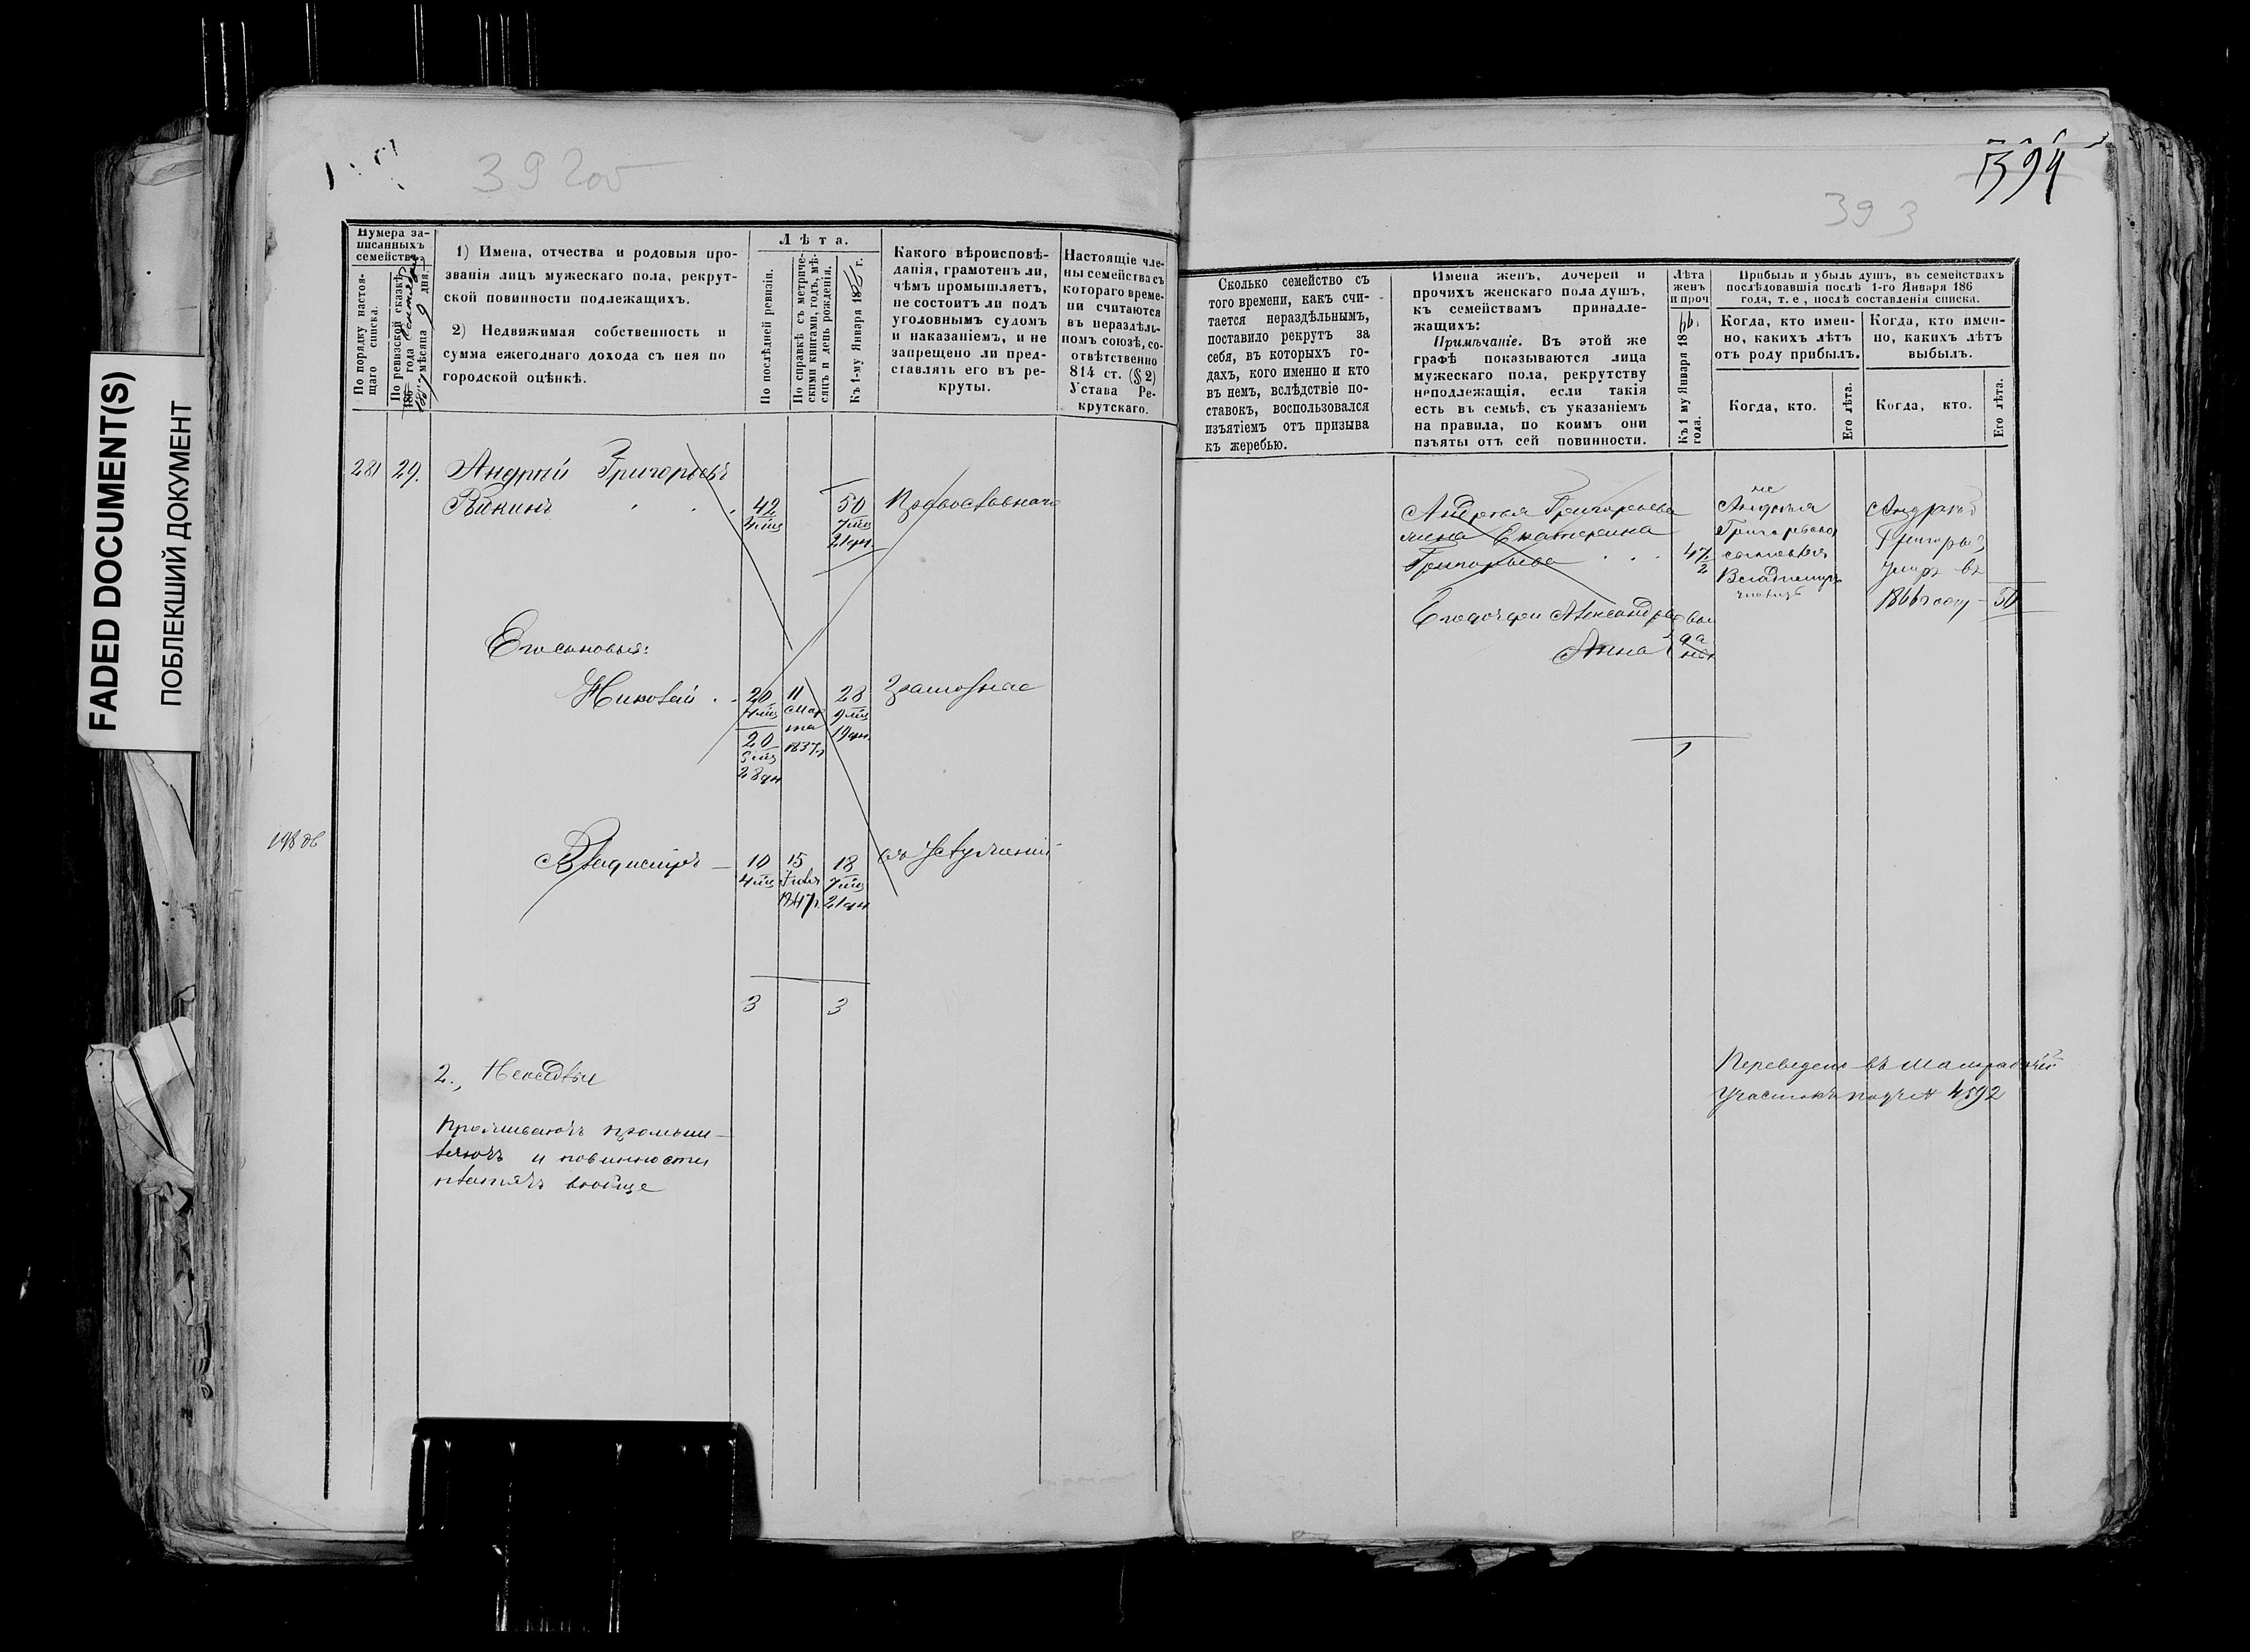 FADED DOCUMENT(S)
ПОБЛЕКШИЙ ДОКУМЕНТ
394
393
Нумера за-
писанныхъ
семействъ
По порядку настоя-
щаго списка.
По ревизской сказкѣ
186 года
мѣсяца 9 дня.
1) Имена, отчества и родовыя про-
званія лицъ мужескаго пола, рекрут-
ской повинности подлежащихъ.
2) Недвижимая собственность и
сумма ежегоднаго дохода съ нея по
городской оцѣнкѣ.
Лѣта.
По послѣдней ревизіи.
По справкѣ съ метриче-
скими книгами, годъ, мѣ-
сяцъ и день рожденія.
Къ 1-му Января 186 г.
Какого вѣроисповѣ-
данія, грамотенъ ли,
чѣмъ промышляетъ,
не состоитъ ли подъ
уголовнымъ судомъ
и наказаніемъ, и не
запрещено ли пред-
ставлять его въ ре-
круты.
Настоящіе чле-
ны семейства съ
котораго време-
ни считаются
въ нераздѣль-
номъ союзѣ, со-
отвѣтственно
814 ст. (§ 2)
Устава Ре-
крутскаго.
281 29. Андрей Григорьевъ
42 50 Православнаго
4 мѣс 7 мѣс
21 дн.
Его сыновья:
Николай 20 11 28
4 мѣс Мар 9 мѣс
та 19 дн.
20 1837 г
8 мѣс
28 дн
Владимиръ 10 15 18
4 мѣс Іюля 7 мѣс
1847 г. 21 дн
3 3
2.,
и повинности
вообще
Сколько семейство съ
того времени, какъ счи-
тается нераздѣльнымъ,
поставило рекрутъ за
себя, въ которыхъ го-
дахъ, кого именно и кто
въ немъ, вслѣдствіе по-
ставокъ, воспользовался
изъятіемъ отъ призыва
къ жеребью.
Имена женъ, дочерей и
прочихъ женскаго пола душъ,
къ семействамъ принадле-
жащихъ:
Примѣчаніе. Въ этой же
графѣ показываются лица
мужескаго пола, рекрутству
неподлежащія, если такія
есть въ семьѣ, съ указаніемъ
на правила, по коимъ они
изъяты отъ сей повинности.
Лѣта
женъ
и проч
Къ 1 му Января 186
года.
Прибыль и убыль душъ, въ семействахъ
послѣдовавшія послѣ 1-го Января 186
года, т. е., послѣ составленія списка.
Когда, кто имен-
но, какихъ лѣтъ
отъ роду прибылъ.
Когда, кто имен-
но, какихъ лѣтъ
выбылъ.
Когда, кто.
Его лѣта.
Когда, кто.
Его лѣта.
Андрея Григорьева
жена Екатерина
Григорьева 47
Его дочери Александра
Анна
1
Андрея
Григорьева
Андрей
Григорьев
умеръ въ
1866 году 50
Переведены въ
участокъ подъ № 4592